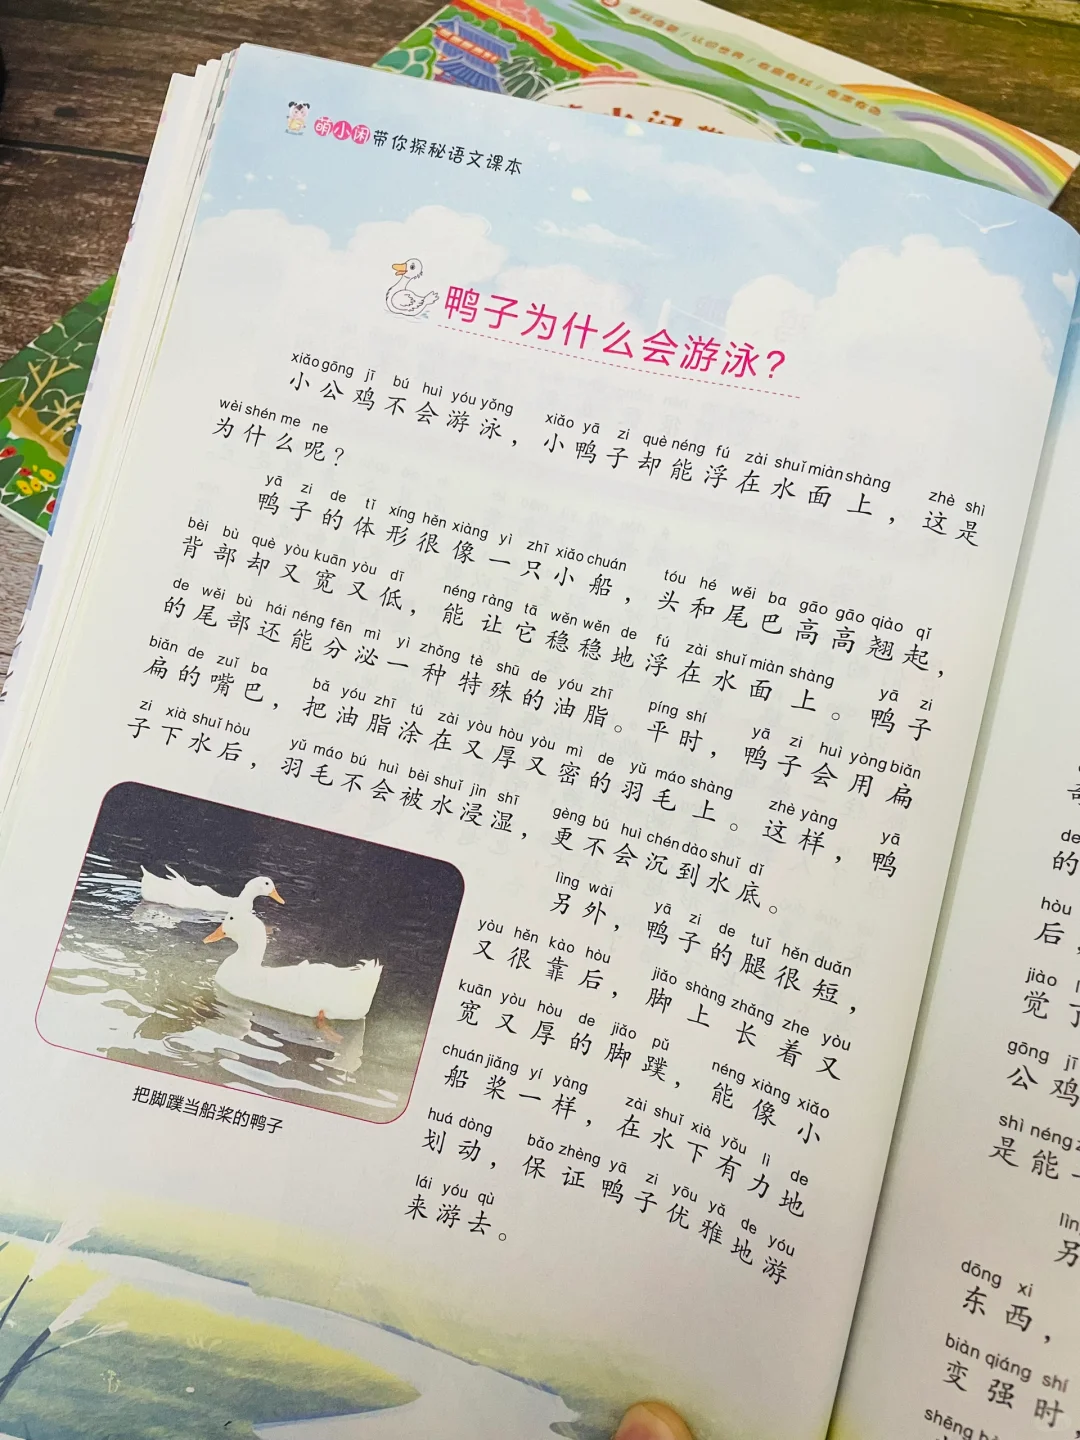 学科专题 / 认识世界 /
萌小闲带你探秘语文课本
鸭子为什么会游泳？
xiǎo gōng jī bú huì yóu yǒng xiǎo yā zi què néng fú zài shuǐ miàn shàng zhè shì
小公鸡不会游泳，小鸭子却能浮在水面上，这是
wèi shén me ne
为什么呢？
yā zi de tǐ xíng hěn xiàng yì zhī xiǎo chuán tóu hé wěi ba gāo gāo qiào qǐ
鸭子的体形很像一只小船，头和尾巴高高翘起，
bèi bù què yòu kuān yòu dī néng ràng tā wěn wěn de fú zài shuǐ miàn shàng yā zi
背部却又宽又低，能让它稳稳地浮在水面上。鸭子
de wěi bù hái néng fēn mì yì zhǒng tè shū de yóu zhī píng shí yā zi huì yòng biǎn
的尾部还能分泌一种特殊的油脂。平时，鸭子会用扁
biǎn de zuǐ ba bǎ yóu zhī tú zài yòu hòu yòu mì de yǔ máo shàng zhè yàng yā
扁的嘴巴，把油脂涂在又厚又密的羽毛上。这样，鸭
zi xià shuǐ hòu yǔ máo bú huì bèi shuǐ jìn shī gèng bú huì chén dào shuǐ dǐ
子下水后，羽毛不会被水浸湿，更不会沉到水底。
lìng wài yā zi de tuǐ hěn duǎn
另外，鸭子的腿很短，
yòu hěn kào hòu jiǎo shàng zhǎng zhe yòu
又很靠后，脚上长着又
kuān yòu hòu de jiǎo pǔ néng xiàng xiǎo
宽又厚的脚蹼，能像小
chuán jiǎng yí yàng zài shuǐ xià yǒu lì de
船桨一样，在水下有力地
huá dòng bǎo zhèng yā zi yōu yǎ de yóu
划动，保证鸭子优雅地游
lái yóu qù
来游去。
把脚蹼当船桨的鸭子
de
的
hòu
后，
jiào
觉了
gōng jī
公鸡
shì néng
是能
lìn
另
dōng xi
东西，
biàn qiáng shí
变强时，
shēng